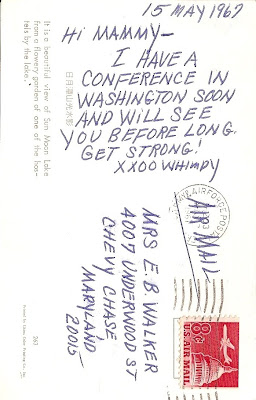 15 MAY 1967
HI MAMMY—
I HAVE A
CONFERENCE IN
WASHINGTON SOON
AND WILL SEE
YOU BEFORE LONG.
GET STRONG!
XXOO WHIMPY
It is a beautiful view of Sun Moon Lake
from a flowery garden of one of the hos-
tels by the lake.
日月潭山光水影
AIR FORCE POST
AIR MAIL
MRS E. B. WALKER
4007 UNDERWOOD ST
CHEVY CHASE
MARYLAND
20015
8¢
US AIR MAIL